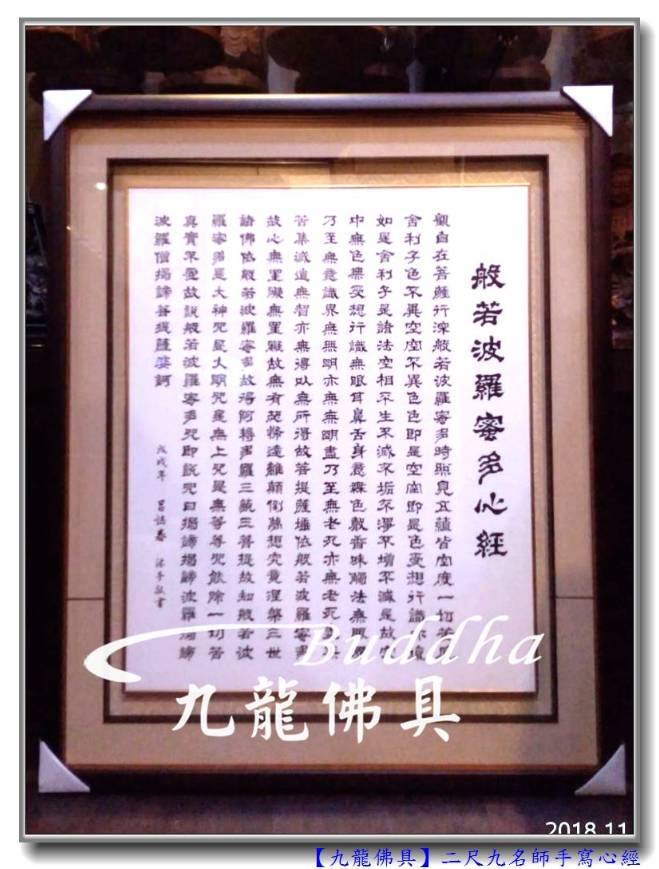 般若波羅蜜多心經
觀自在菩薩行深般若波羅蜜多時照見五蘊皆空度一切苦厄
舍利子色不異空空不異色色即是空空即是色受想行識亦復
如是舍利子是諸法空相不生不滅不垢不淨不增不減是故空
中無色無受想行識無眼耳鼻舌身意無色聲香味觸法無眼界
乃至無意識界無無明亦無無明盡乃至無老死亦無老死盡無
苦集滅道無智亦無得以無所得故菩提薩埵依般若波羅蜜多
故心無罣礙無罣礙故無有恐怖遠離顛倒夢想究竟涅槃三世
諸佛依般若波羅蜜多故得阿耨多羅三藐三菩提故知般若波
羅蜜多是大神咒是大明咒是無上咒是無等等咒能除一切苦
真實不虛故說般若波羅蜜多咒即說咒曰揭諦揭諦波羅揭諦
波羅僧揭諦菩提薩婆訶
戊戌年 呂 春 沐手敬書
Buddha
九龍佛具
2018.11
【九龍佛具】二尺九名師手寫心經